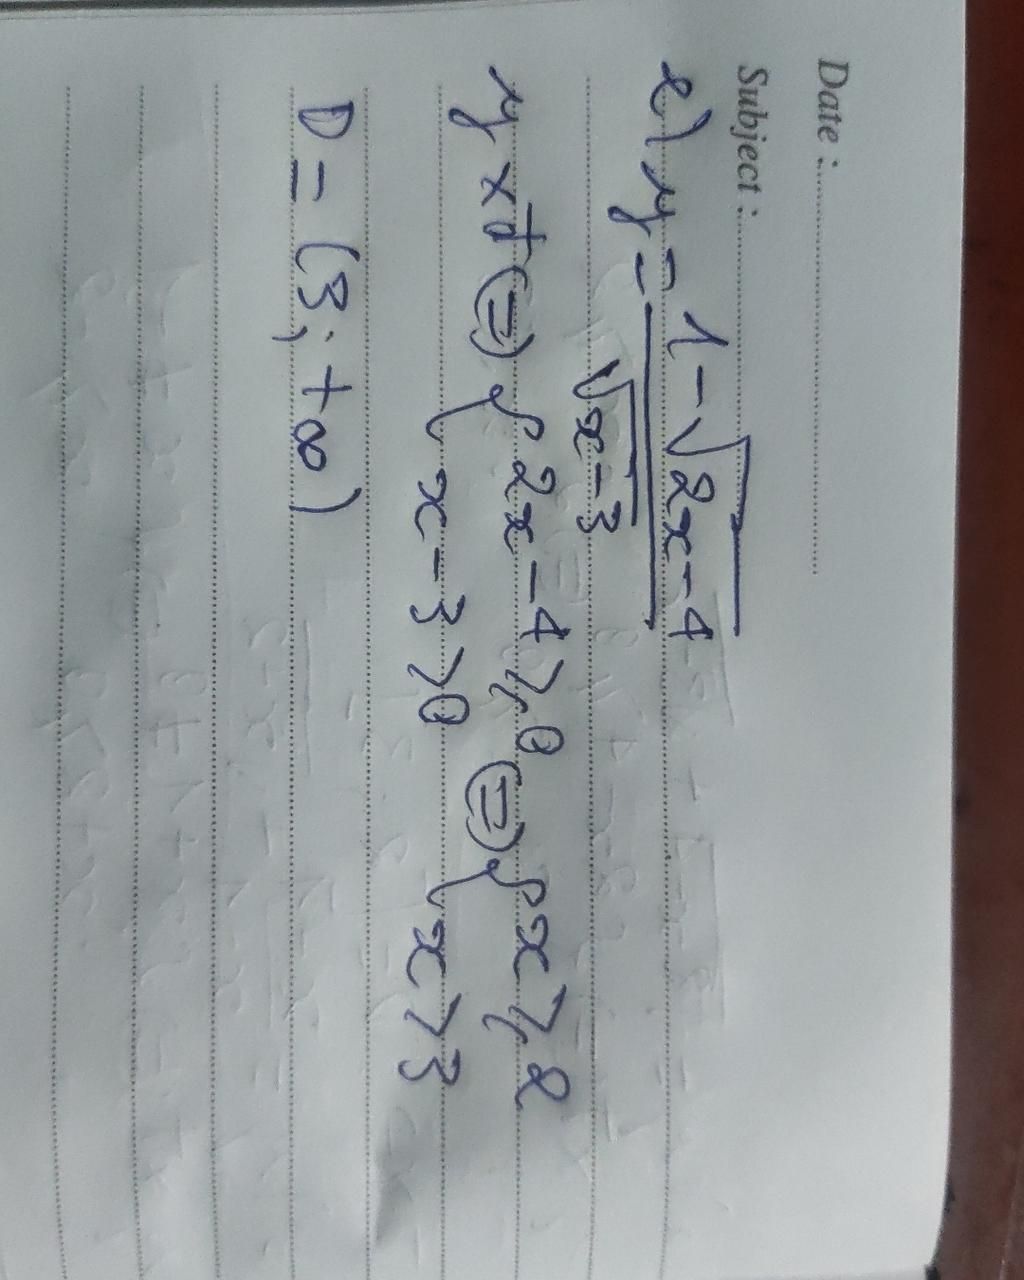 Date :
Subject :
e) y = 1 - √2x - 4
√x - 3
y xđ ⇔ { 2x - 4 ⩾ 0 ⇔ { x ⩾ 2
x - 3 > 0 x > 3
D = (3; +∞)